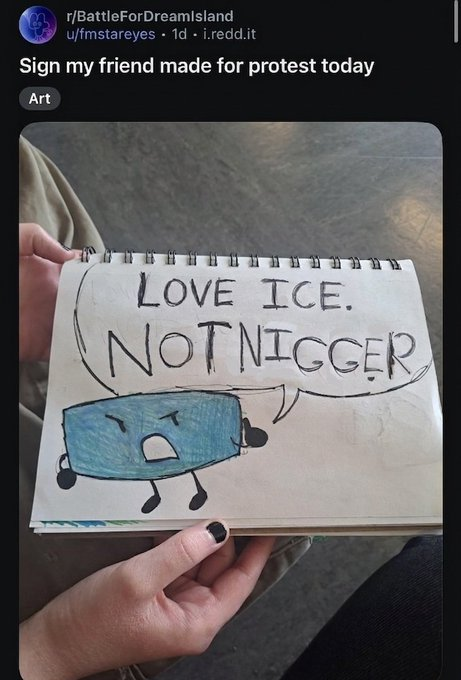 r/BattleForDreamIsland
u/fmstareyes • 1d • i.redd.it
Sign my friend made for protest today
Art
LOVE ICE.
NOT NIGGER